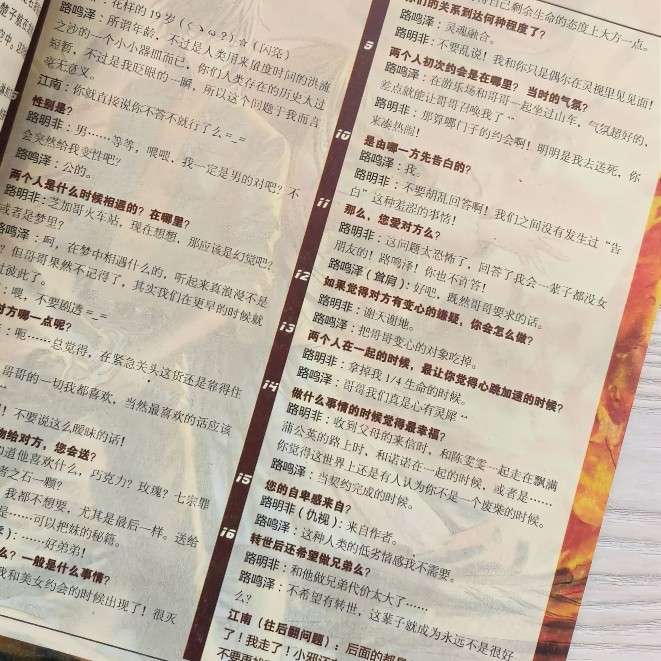 花样的19岁(ゝω?)☆(闪亮)
路鸣泽：所谓年龄，不过是人类用来量度时间的洪流
之沙的一个小小器皿而已，你们人类存在的历史太过
短暂，不过是我眨眼的一瞬，所以这个问题于我而言
毫无意义。
江南：你就直接说你不答不就行了么=_=
性别是？
路明非：男……等等，喂喂，我一定是男的对吧？不
会突然给我变性吧？
路鸣泽：公的。
两个人是什么时候相遇的？在哪里？
路明非：芝加哥火车站，现在想想，那应该是幻觉吧？
或者是梦里？
路鸣泽：呵，在梦中相遇什么的，听起来真浪漫不是
？但哥哥果然不记得了，其实我们在更早的时候就
过彼此了。
：喂，不要剧透=_=
对方哪一点呢？
：呃……总觉得，在紧急关头这货还是靠得住
哥哥的一切我都喜欢，当然最喜欢的话应该
！不要说这么暧昧的话！
物给对方，您会送？
知道他喜欢什么，巧克力？玫瑰？七宗罪
者之石一颗？
我都不想要，尤其是最后一样。送给
是……可以把妹的秘籍。
）：……好弟弟！
么？一般是什么事情？
我和美女约会的时候出现了！很灭
自己剩余生命的态度上大方一点。
你们的关系到达何种程度了？
路鸣泽：灵魂融合。
路明非：不要乱说！我和你只是偶尔在灵视里见见面！
9
两个人初次约会是在哪里？当时的气氛？
路鸣泽：在游乐场和哥哥一起坐过山车，气氛超好的，
差点就能让哥哥召唤我了~
路明非：那算哪门子的约会啊！明明是我去送死，你
来凑热闹！
10
是由哪一方先告白的？
路鸣泽：我。
路明非：不要胡乱回答啊！我们之间没有发生过“告
白”这种羞涩的事情！
11
那么，您爱对方么？
路明非：这问题太恐怖了，回答了我会一辈子都没女
朋友的！路鸣泽！你也不许答！
路鸣泽（耸肩）：好吧，既然哥哥要求的话。
12
如果觉得对方有变心的嫌疑，你会怎么做？
路明非：谢天谢地。
路鸣泽：把哥哥变心的对象吃掉。
13
两个人在一起的时候，最让你觉得心跳加速的时候？
路明非：拿掉我1/4生命的时候。
路鸣泽：哥哥我们真是心有灵犀~
14
做什么事情的时候觉得最幸福？
路明非：收到父母的来信时，和陈雯雯一起走在飘满
蒲公英的路上时，和诺诺在一起的时候，或者是……
你觉得这世界上还是有人认为你不是一个废柴的时候。
路鸣泽：当契约完成的时候。
15
您的自卑感来自？
路明非（仇视）：来自作者。
路鸣泽：这种人类的低劣情感我不需要。
16
转世后还希望做兄弟么？
路明非：和他做兄弟代价太大了……
路鸣泽：不希望有转世，这辈子就成为永远不是很好
么？
江南（往后翻问题）：后面的都
了！我走了！小邪